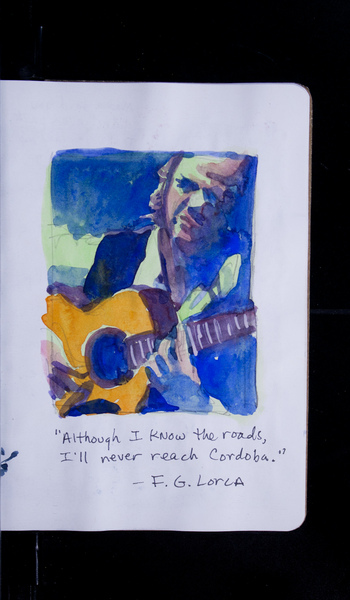 "Although I know the roads,
I'll never reach Cordoba."
— F. G. Lorca